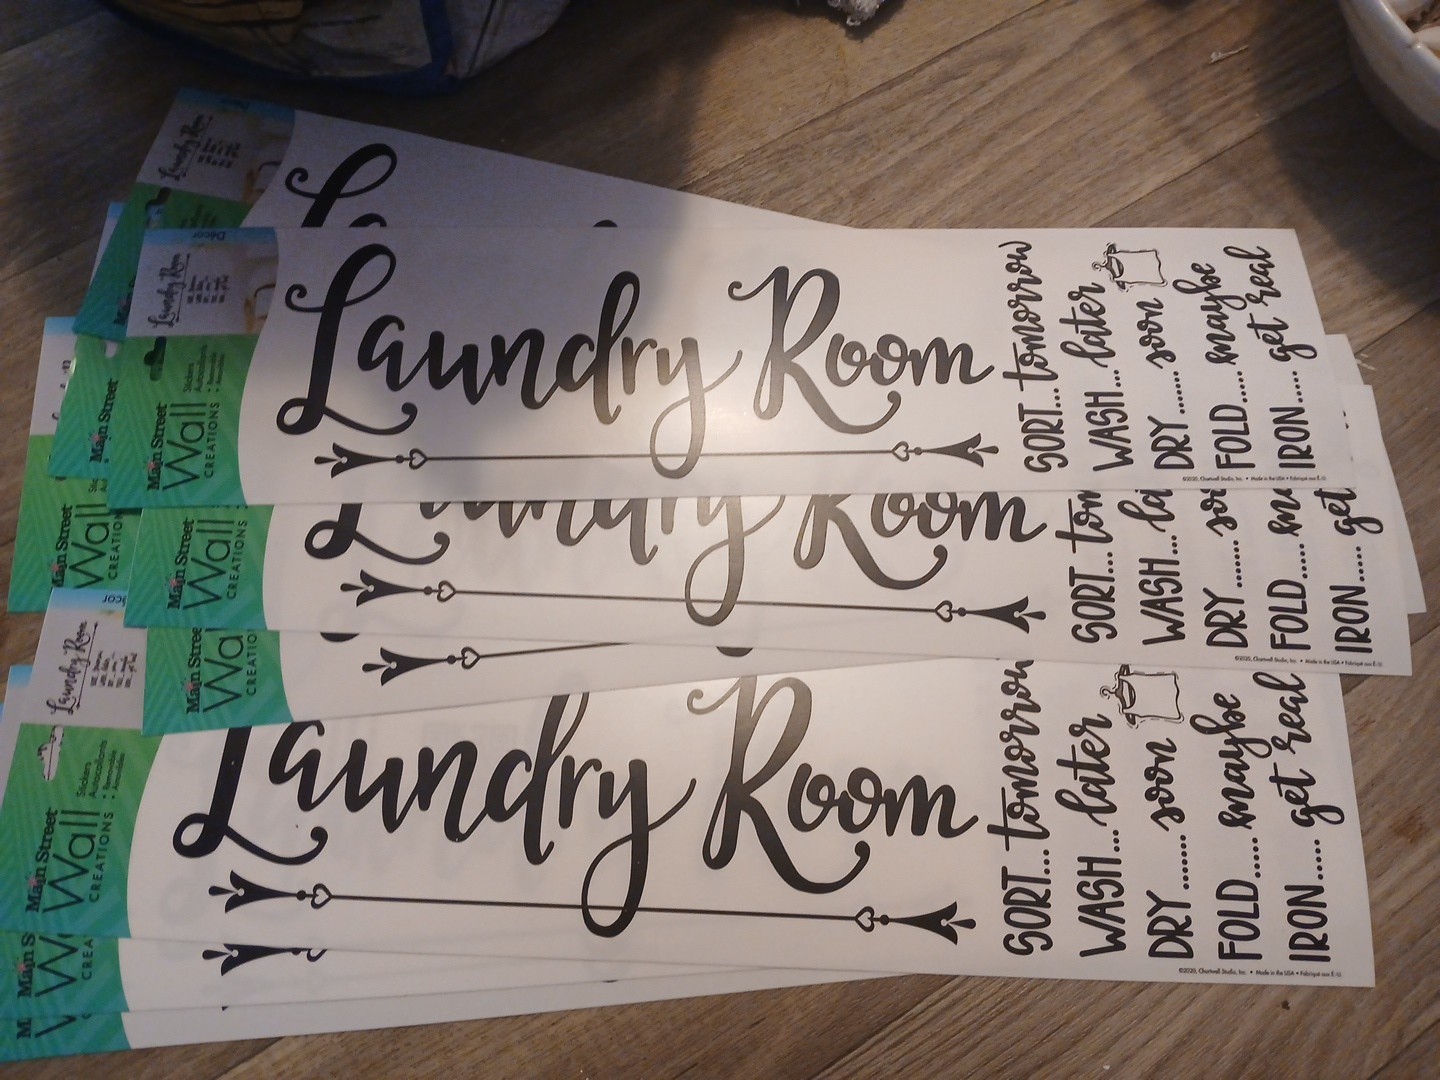 Laundry Room
Décor
Laundry Room
Main Street
Wall
CREATIONS
Stickers
Autocollants
• Removable
Amovibles
Laundry Room
SORT... tomorrow
WASH... later
DRY........ soon
FOLD..... maybe
IRON..... get real
©2020, Chartwell Studio, Inc. • Made in the USA • Fabriqué aux É.-U.
Main Street
Wall
CREATIONS
Main Street
Wall
CREATIONS
Laundry Room
SORT... tom
WASH... la
DRY........ so
FOLD..... ma
IRON..... get
©2020, Chartwell Studio, Inc. • Made in the USA • Fabriqué aux É.-U.
Main Stree
Wa
CREATIO
Décor
Laundry Room
Main Street
Wall
CREATIONS
Stickers
Autocollants
• Removable
Amovibles
Laundry Room
SORT... tomorrow
WASH... later
DRY........ soon
FOLD..... maybe
IRON..... get real
©2020, Chartwell Studio, Inc. • Made in the USA • Fabriqué aux É.-U.
Main S
W
CREA